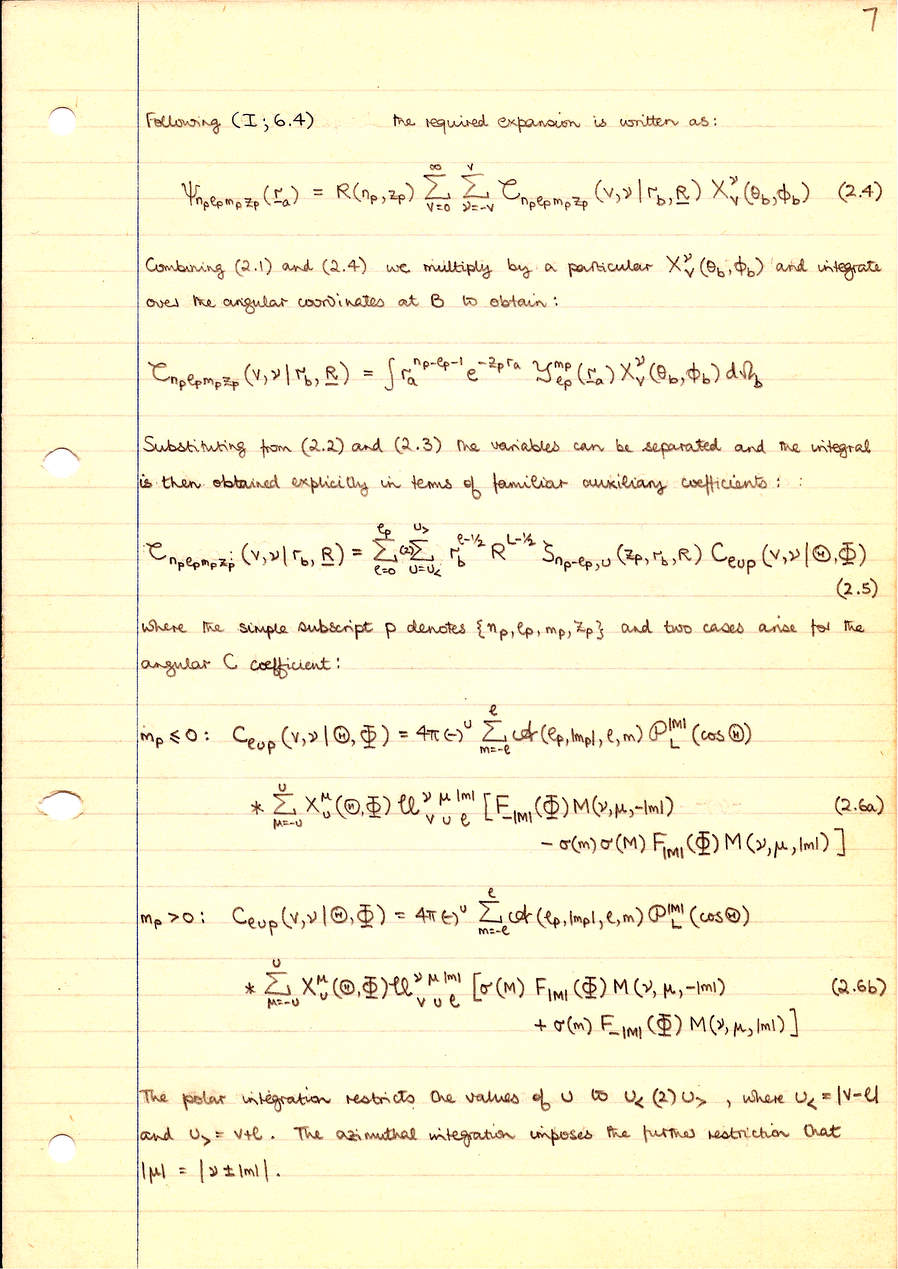 7
Following (I; 6.4) the required expansion is written as:
Ψ_{n_p ℓ_p m_p z_p}(r_a) = R(n_p, z_p) ∑_{v=0}^{∞} ∑_{ν=-v}^{v} 𝒞_{n_p ℓ_p m_p z_p}(v, ν | r_b, R) X_v^ν(θ_b, φ_b) (2.4)
Combining (2.1) and (2.4) we multiply by a particular X_v^ν(θ_b, φ_b) and integrate
over the angular coordinates at B to obtain:
𝒞_{n_p ℓ_p m_p z_p}(v, ν | r_b, R) = ∫ r_a^{n_p-ℓ_p-1} e^{-z_p r_a} 𝒴_{ℓ_p}^{m_p}(r_a) X_v^ν(θ_b, φ_b) dΩ_b
Substituting from (2.2) and (2.3) the variables can be separated and the integral
is then obtained explicitly in terms of familiar auxiliary coefficients: :
𝒞_{n_p ℓ_p m_p z_p}(v, ν | r_b, R) = ∑_{ℓ=0}^{ℓ_p} ∑^{(2)}_{u=u_<}^{u_>} r_b^{ℓ-1/2} R^{L-1/2} ζ_{n_p-ℓ_p, u}(z_p, r_b, R) C_{ℓup}(v, ν | Θ, Φ)
(2.5)
where the simple subscript p denotes {n_p, ℓ_p, m_p, z_p} and two cases arise for the
angular C coefficient:
m_p ≤ 0: C_{ℓup}(v, ν | Θ, Φ) = 4π (-)^u ∑_{m=-ℓ}^{ℓ} 𝒜(ℓ_p, |m_p|, ℓ, m) 𝒫_L^{|M|}(cos Θ)
* ∑_{μ=-u}^{u} X_u^μ(Θ, Φ) 𝒰_{v u ℓ}^{ν μ |m|} [F_{-|M|}(Φ) M(ν, μ, -|m|) (2.6a)
- σ(m) σ(M) F_{|M|}(Φ) M(ν, μ, |m|)]
m_p > 0: C_{ℓup}(v, ν | Θ, Φ) = 4π (-)^u ∑_{m=-ℓ}^{ℓ} 𝒜(ℓ_p, |m_p|, ℓ, m) 𝒫_L^{|M|}(cos Θ)
* ∑_{μ=-u}^{u} X_u^μ(Θ, Φ) 𝒰_{v u ℓ}^{ν μ |m|} [σ(M) F_{|M|}(Φ) M(ν, μ, -|m|) (2.6b)
+ σ(m) F_{-|M|}(Φ) M(ν, μ, |m|)]
The polar integration restricts the values of u to u_< (2) u_>, where u_< = |v-ℓ|
and u_> = v+ℓ. The azimuthal integration imposes the further restriction that
|μ| = |ν ± |m||.